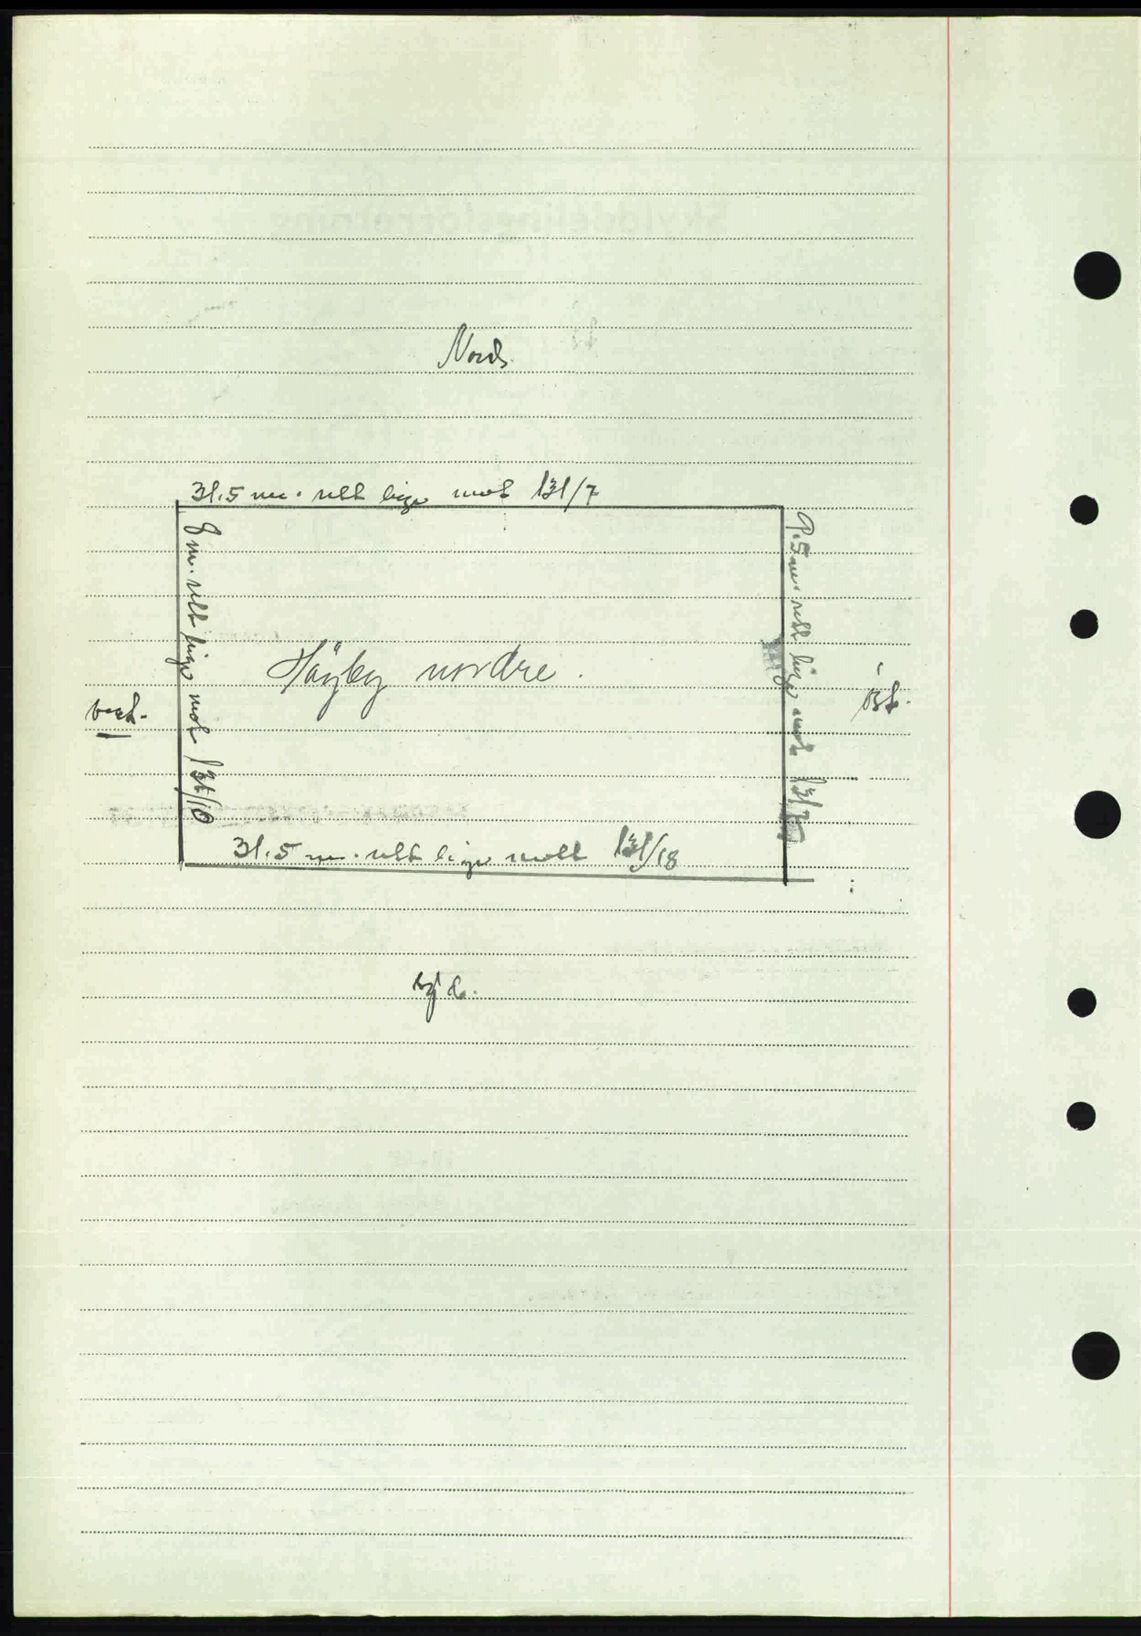 Nord.
31.5 m. rett linje mot 131/7
8 m. rett linje mot 131/10
9.5 m. rett linje mot 131/7
Häyby nordre.
vest.
øst.
31.5 m. rett linje mott 131/18
syd.